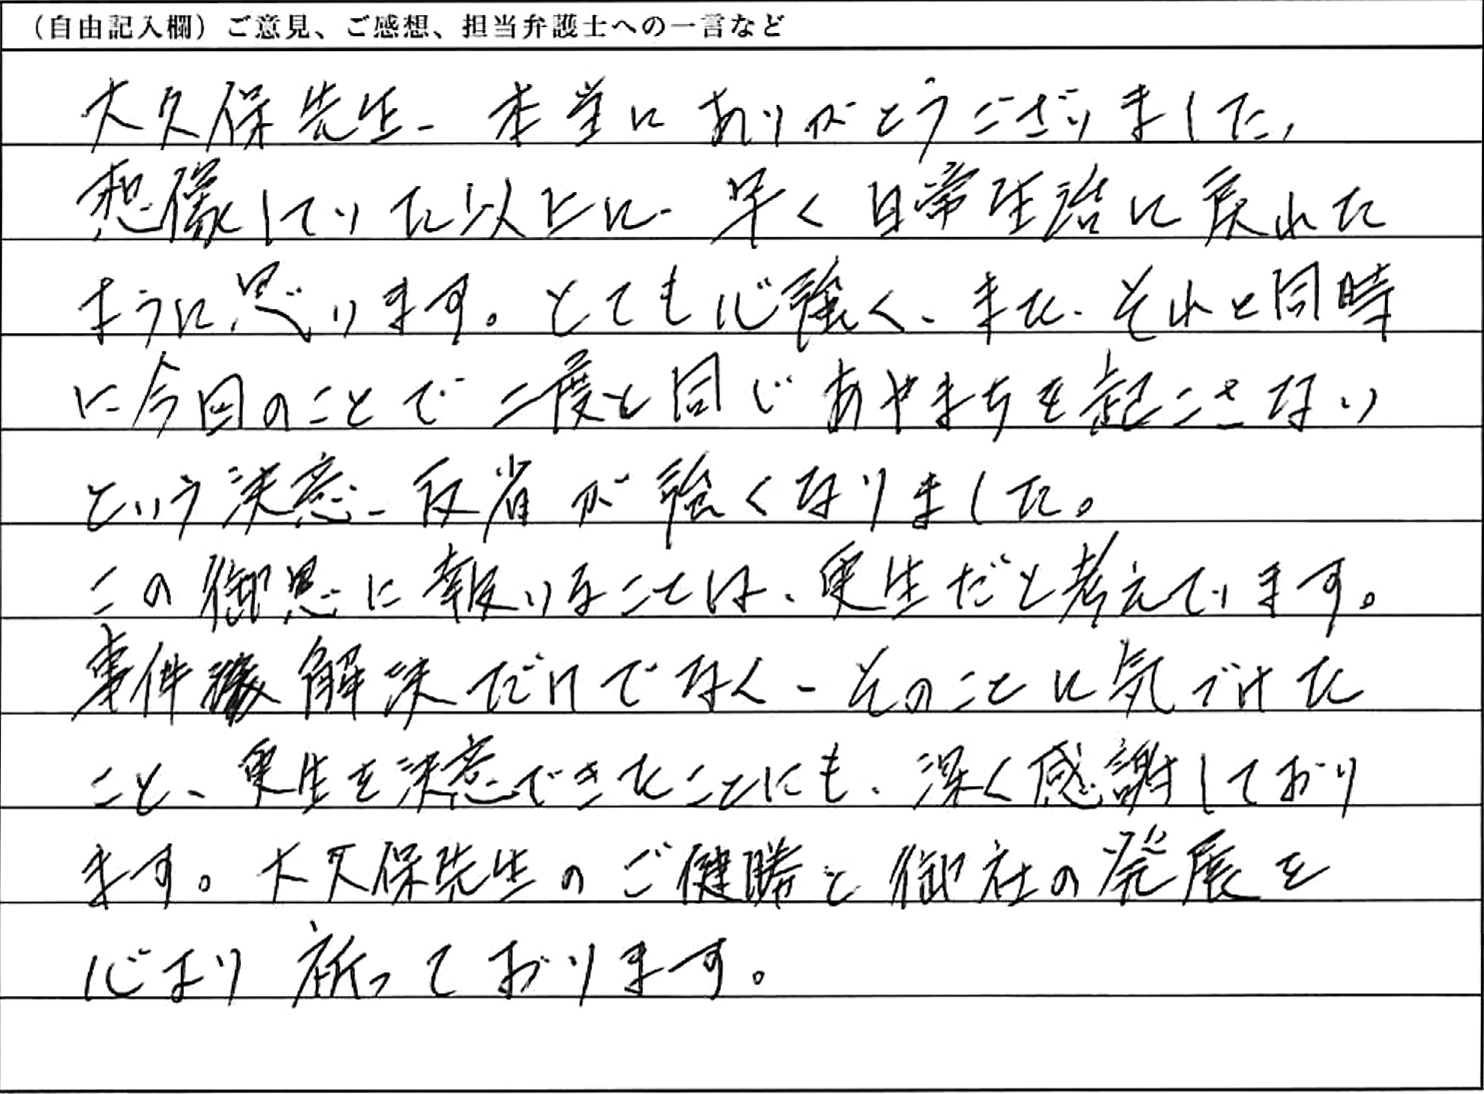 （自由記入欄）ご意見、ご感想、担当弁護士への一言など
大久保先生、本当にありがとうございました。
想像していた以上に、早く日常生活に戻れた
ように思います。とても心強く、また、それと同時
に今回のことで二度と同じあやまちを起こさない
という決意、反省が強くなりました。
この御恩に報いることは、更生だと考えています。
事件解決だけでなく、そのことに気づけた
こと、更生を決意できたことにも、深く感謝しており
ます。大久保先生のご健勝と御社の発展を
心より祈っております。